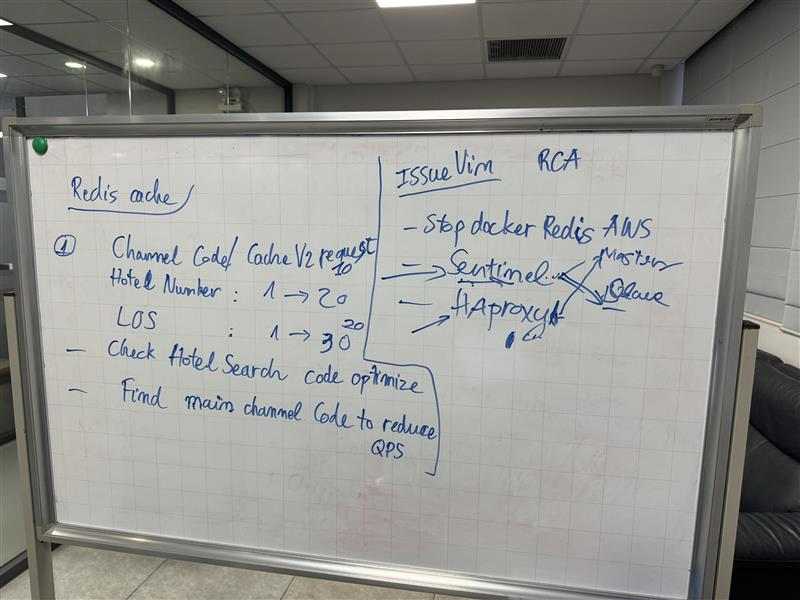 Redis cache
① Channel Code/ Cache V2 request
10
Hotel Number : 1 → 20
20
LOS : 1 → 30
- Check Hotel Search code optimize
- Find main channel Code to reduce
QPS
Issue Vim RCA
- Stop docker Redis AWS
- Sentinel
Master
Slave
- HAproxy